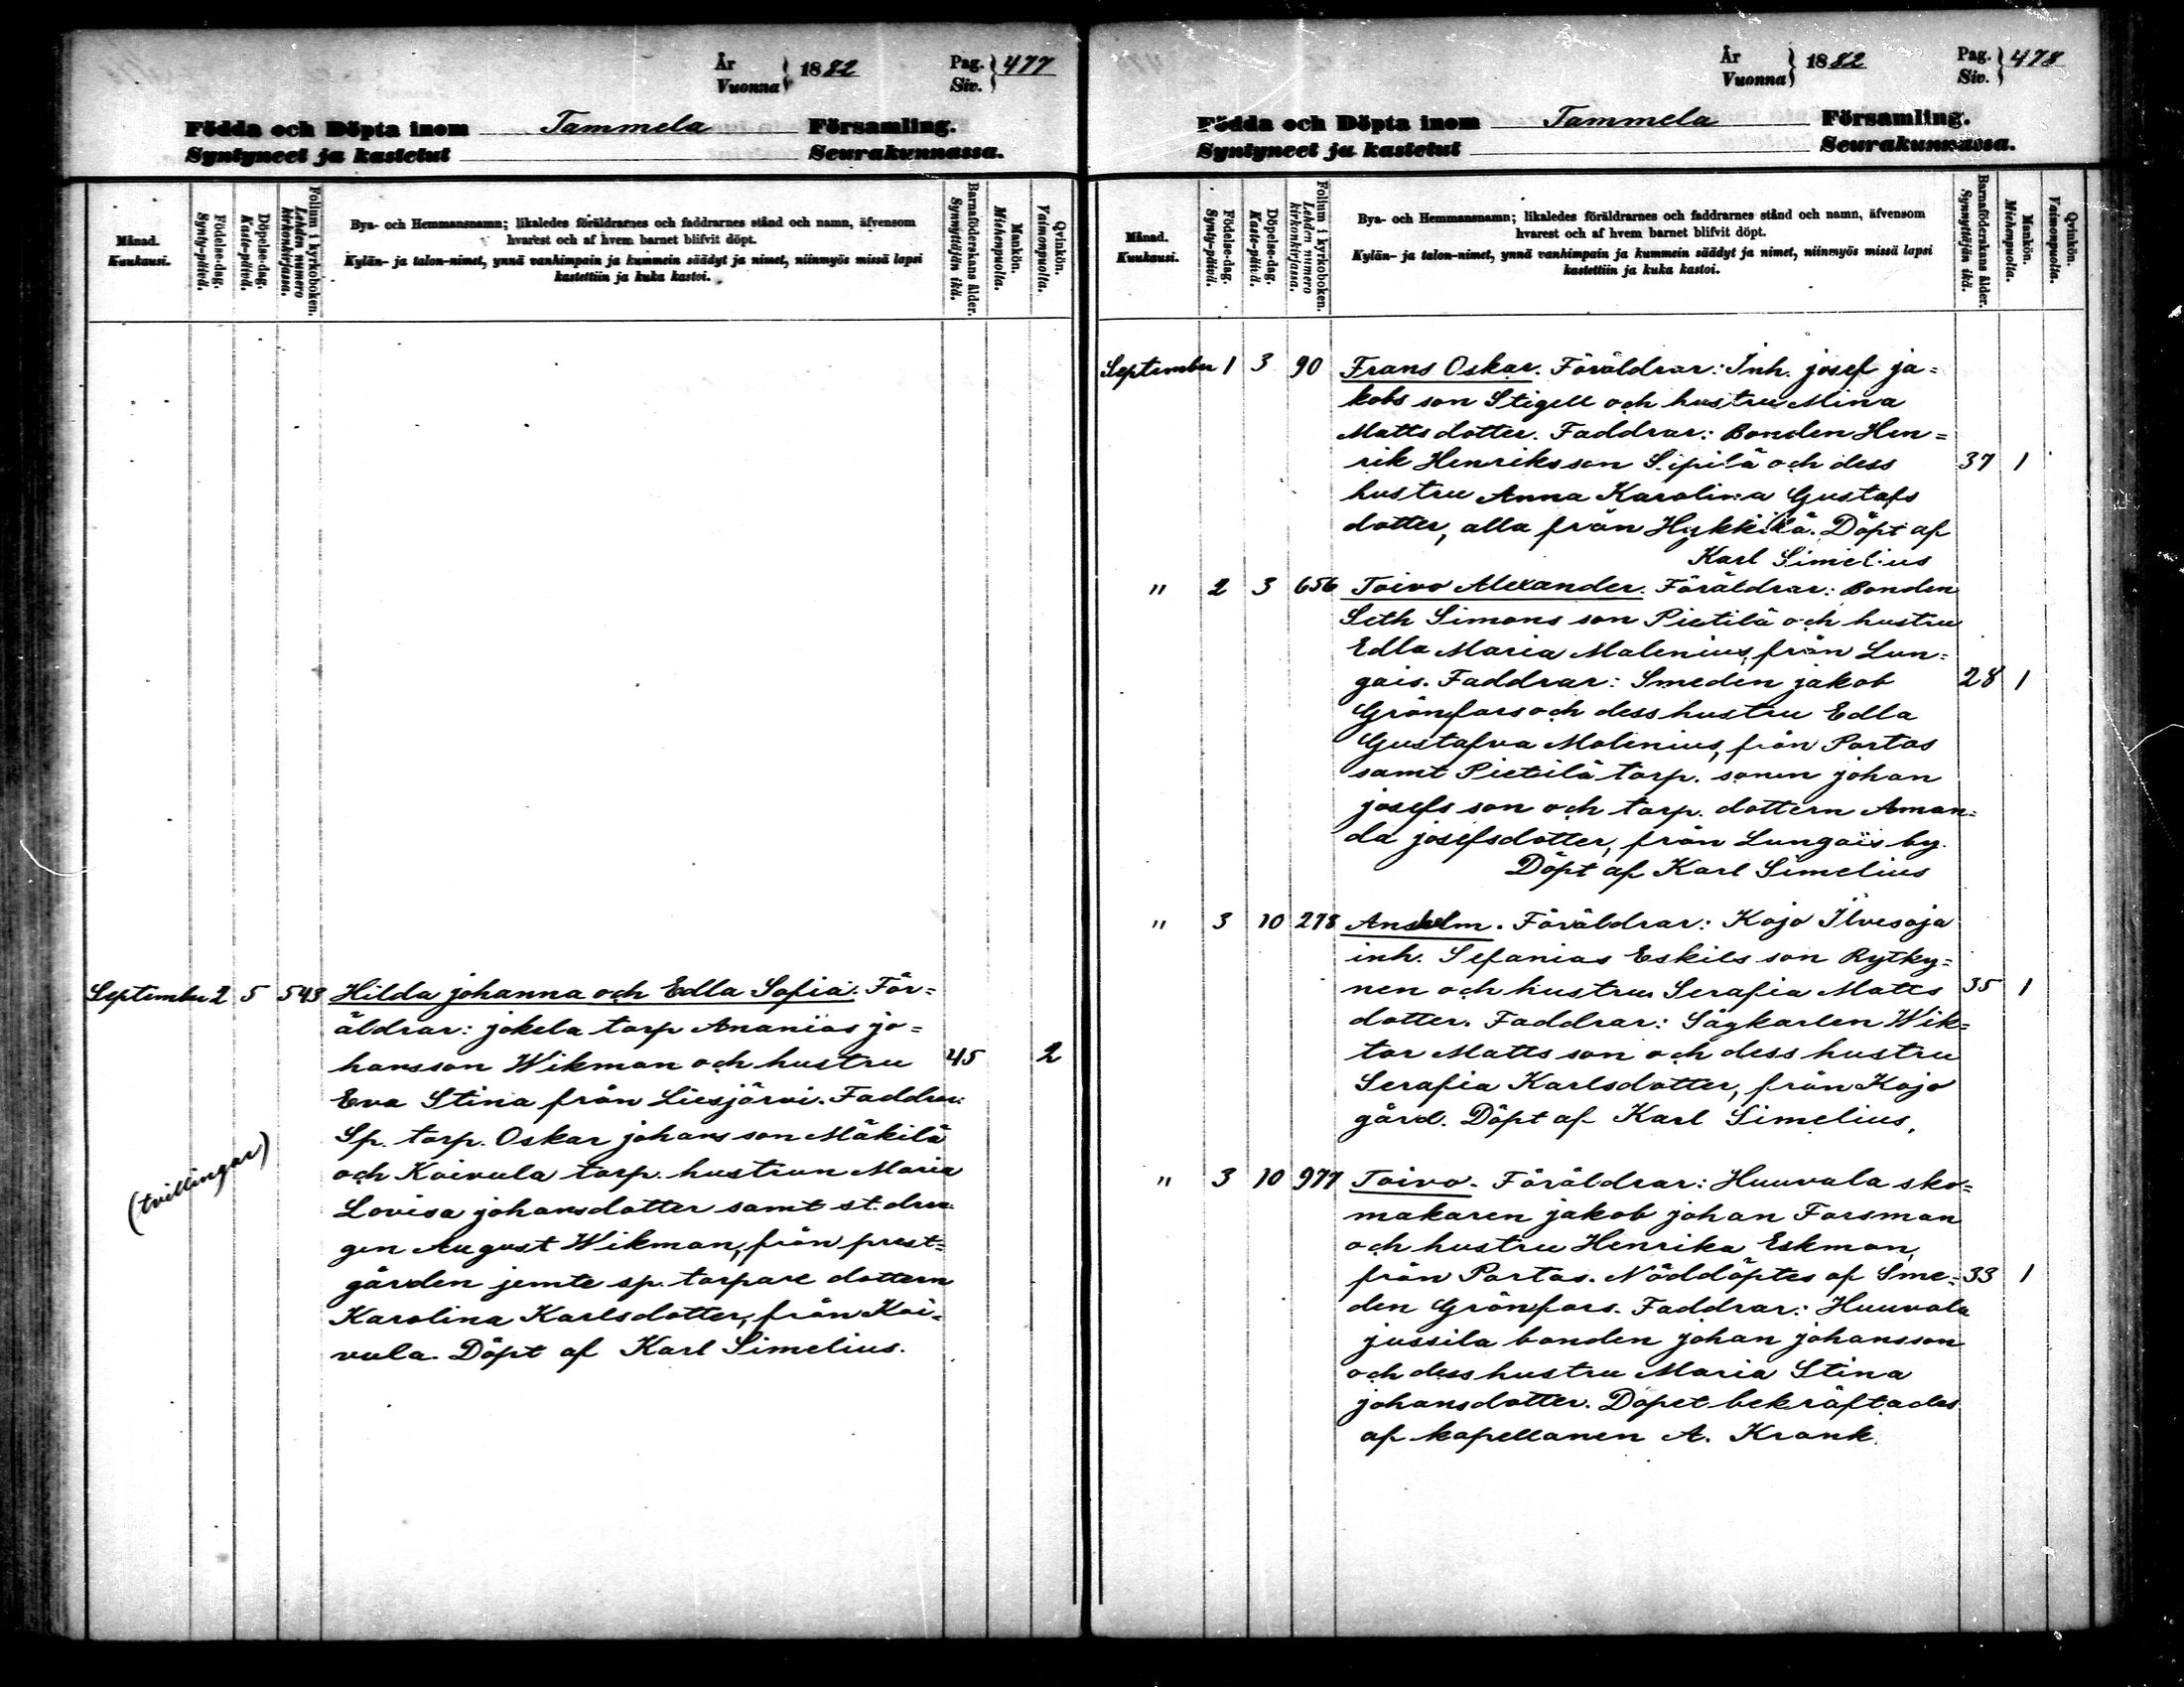 År
Vuonna } 1882 Pag.
Siv. } 477
Födda och Döpta inom Tammela Församling.
Syntyneet ja kastetut Seurakunnassa.
Månad.
Kuukausi.
Födelse-dag.
Synty-päivä.
Döpelse-dag.
Kaste-päivä.
Folium i kyrkoboken.
Lehden numero
kirkonkirjassa.
Bya- och Hemmansnamn; likaledes föräldrarnes och faddrarnes stånd och namn, äfvensom
hvarest och af hvem barnet blifvit döpt.
Kylän- ja talon-nimet, ynnä vanhimpain ja kummein säädyt ja nimet, niinmyös missä lapsi
kastettiin ja kuka kastoi.
Barnaföderskans ålder.
Synnyttäjän ikä.
Mankön.
Miehenpuolta.
Qvinkön.
Vaimonpuolta.
September 2 5 543 Hilda johanna och Edla Sofia. För=
äldrar: jokela torp Ananias jo=
hansson Wikman och hustru 45 2
Eva Stina från Liesjärvi. Faddrar:
Sp. torp. Oskar johans son Mäkilä
och Koivula torp. hustrun Maria
(tvillingar)
Lovisa johansdotter samt st. drän
gen August Wikman, från prest=
gården jemte sp. torpare dottern
Karolina Karlsdotter, från Koi=
vula. Döpt af Karl Simelius.
År
Vuonna } 1882 Pag.
Siv. } 478
Födda och Döpta inom Tammela Församling.
Syntyneet ja kastetut Seurakunnassa.
Månad.
Kuukausi.
Födelse-dag.
Synty-päivä.
Döpelse-dag.
Kaste-päivä.
Folium i kyrkoboken.
Lehden numero
kirkonkirjassa.
Bya- och Hemmansnamn; likaledes föräldrarnes och faddrarnes stånd och namn, äfvensom
hvarest och af hvem barnet blifvit döpt.
Kylän- ja talon-nimet, ynnä vanhimpain ja kummein säädyt ja nimet, niinmyös missä lapsi
kastettiin ja kuka kastoi.
Barnaföderskans ålder.
Synnyttäjän ikä.
Mankön.
Miehenpuolta.
Qvinkön.
Vaimonpuolta.
September 1 3 90 Frans Oskar. Föräldrar: Inh. josef ja=
kobs son Stigell och hustru Mina
Matts dotter. Faddrar: Bonden Hen=
rik Henriksson Sipilä och dess 37 1
hustru Anna Karolina Gustafs
dotter, alla från Hykkilä. Döpt af
Karl Simelius
" 2 3 656 Toivo Alexander. Föräldrar: Bonden
Seth Simons son Pietilä och hustru
Edla Maria Malenius, från Lun=
gais. Faddrar: Smeden jakob 28 1
Grönfors och dess hustru Edla
Gustafva Molenius, från Portas
samt Pietilä torp. sonen johan
josefs son och torp. dottern Aman=
da josefsdotter, från Lungais by.
Döpt af Karl Simelius
" 3 10 278 Anshelm. Föräldrar: Kojo Ilvesoja
inh. Sefanias Eskils son Rytky=
nen och hustru Serafia Matts 35 1
dotter. Faddrar: Sågkarlen Wik=
tor Matts son och dess hustru
Serafia Karlsdotter, från Kojo
gård. Döpt af Karl Simelius.
" 3 10 977 Toivo. Föräldrar: Huuvala sko=
makaren jakob johan Forsman
och hustru Henrika Eskman,
från Portas. Nöddöptes af Sme= 33 1
den Grönfors. Faddrar: Huuvala
jussila bonden johan johansson
och dess hustru Maria Stina
johansdotter. Dopet bekräftades
af kapellanen A. Krank.